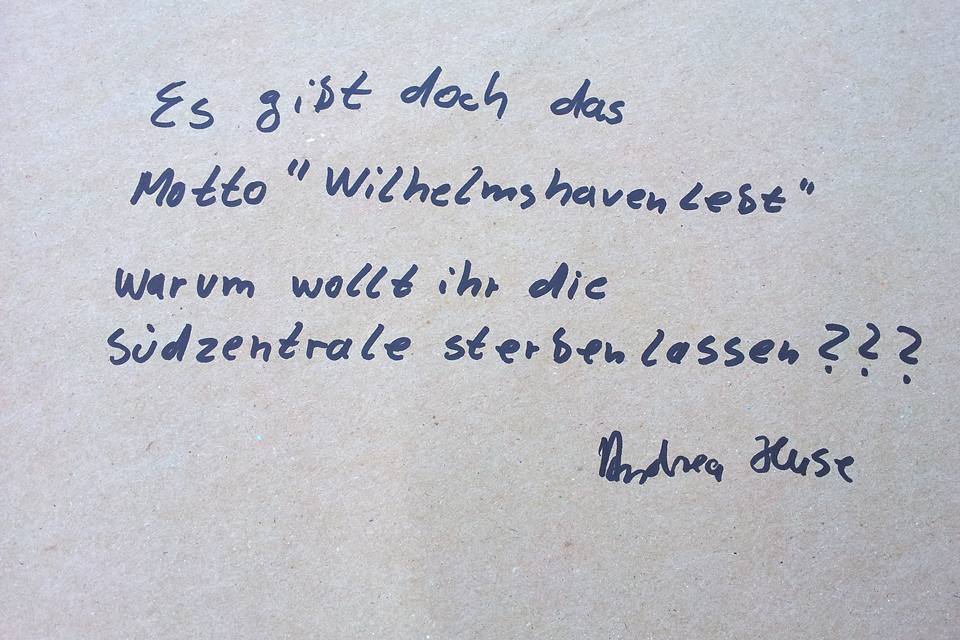 Es gibt doch das
Motto "Wilhelmshaven lebt"
Warum wollt ihr die
Südzentrale sterben lassen???
Andrea Huse